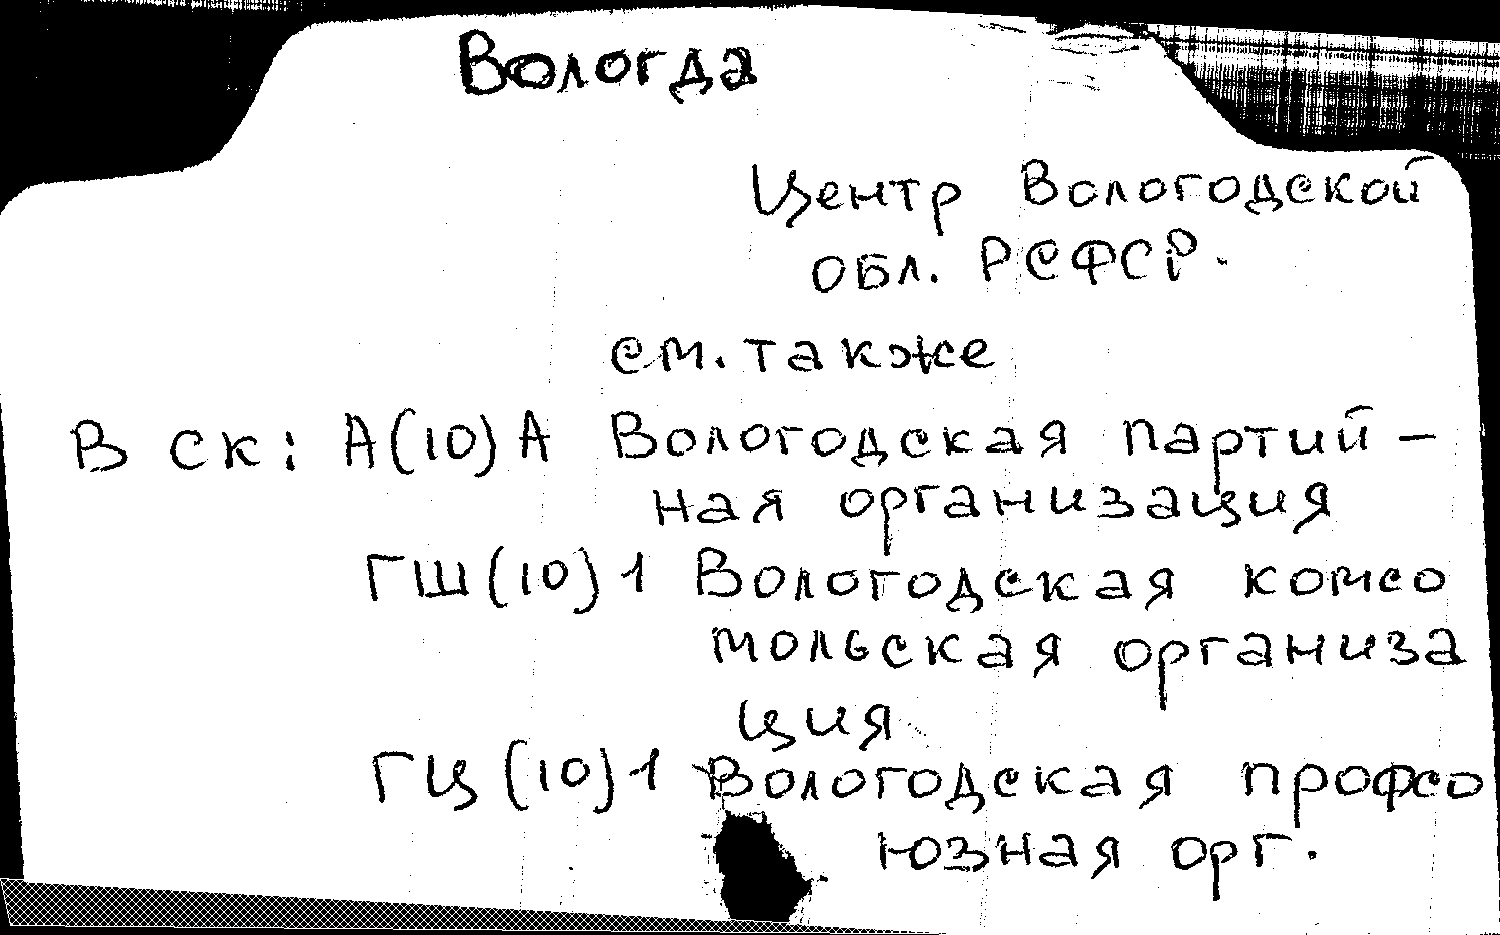 Вологда
Центр Вологодской
обл. РСФСР.
см. также
В СК: А(10)А Вологодская партий-
ная организация
ГШ(10)1 Вологодская комсо
мольская организа
ция
ГЦ(10)1 Вологодская профсо
юзная орг.